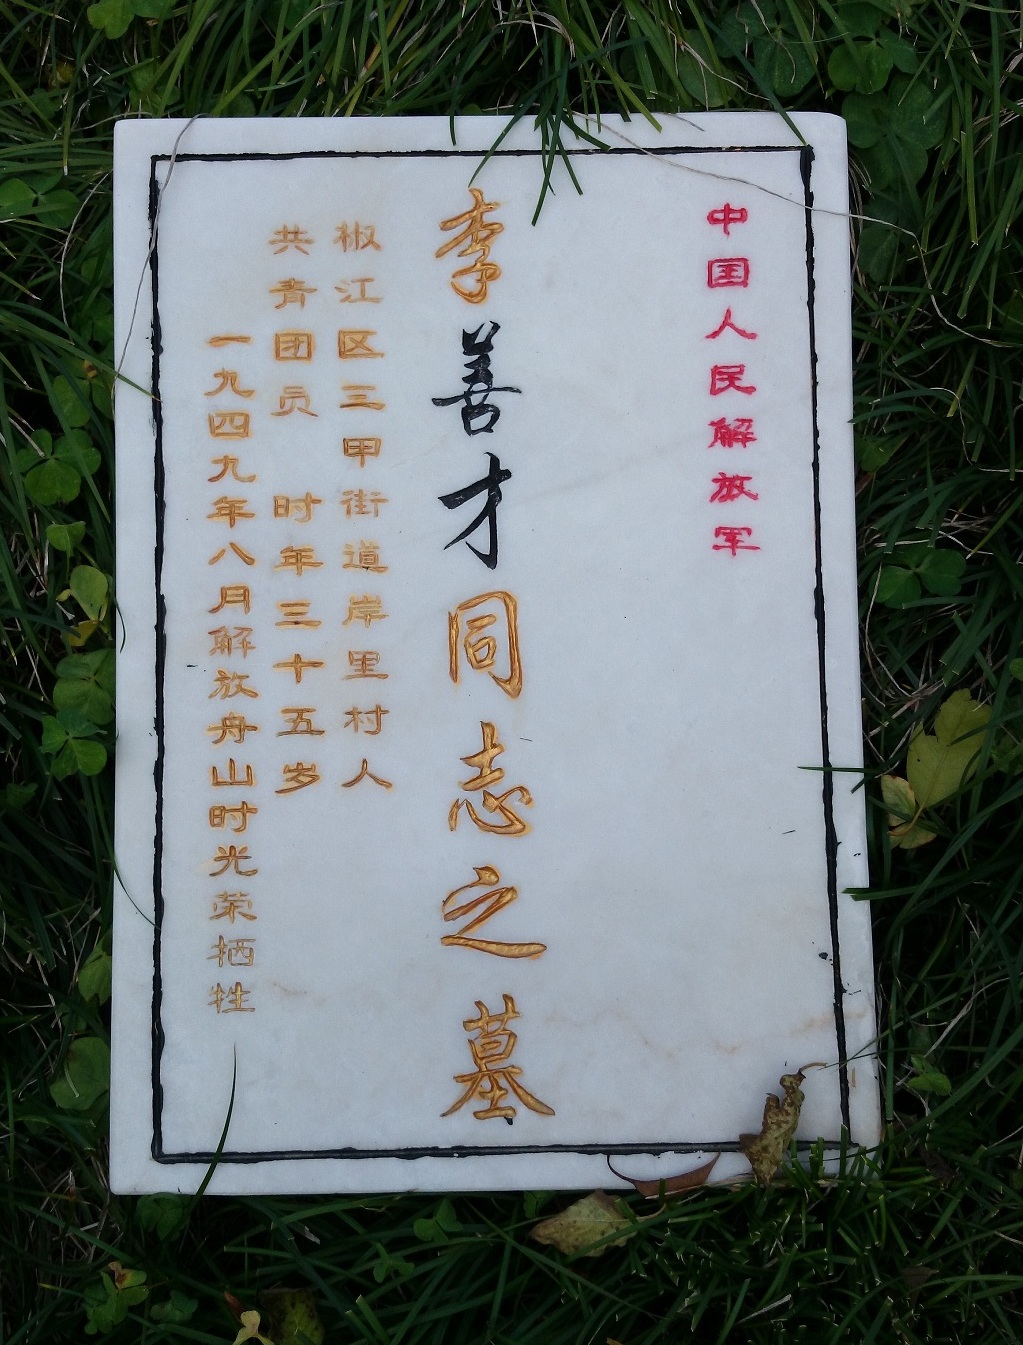 中国人民解放军
李善才同志之墓
椒江区三甲街道岸里村人
共青团员 时年三十五岁
一九四九年八月解放舟山时光荣牺牲